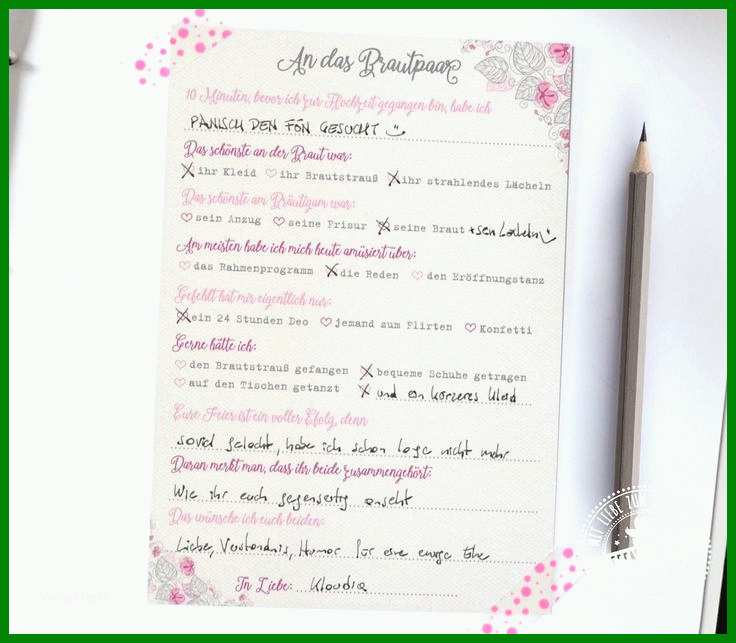 An das Brautpaar
10 Minuten, bevor ich zur Hochzeit gegangen bin, habe ich
PANISCH DEN FÖN GESUCHT
Das schönste an der Braut war:
ihr Kleid ihr Brautstrauß ihr strahlendes Lächeln
Das schönste am Bräutigam war:
sein Anzug seine Frisur seine Braut + sein Lächeln
Am meisten habe ich mich heute amüsiert über:
das Rahmenprogramm die Reden den Eröffnungstanz
Gefehlt hat mir eigentlich nur:
ein 24 Stunden Deo jemand zum Flirten Konfetti
Gerne hätte ich:
den Brautstrauß gefangen bequeme Schuhe getragen
auf den Tischen getanzt und ein kürzeres Kleid
Eure Feier ist ein voller Efolg, denn
soviel gelacht, habe ich schon lage nicht mehr
Daran merkt man, dass ihr beide zusammengehört:
Wie ihr euch gegenseitig anseht
Das wünsche ich euch beiden:
Liebe, Verständnis, Humor für eine ewige Ehe
In Liebe: Klaudia
MIT LIEBE ZUM